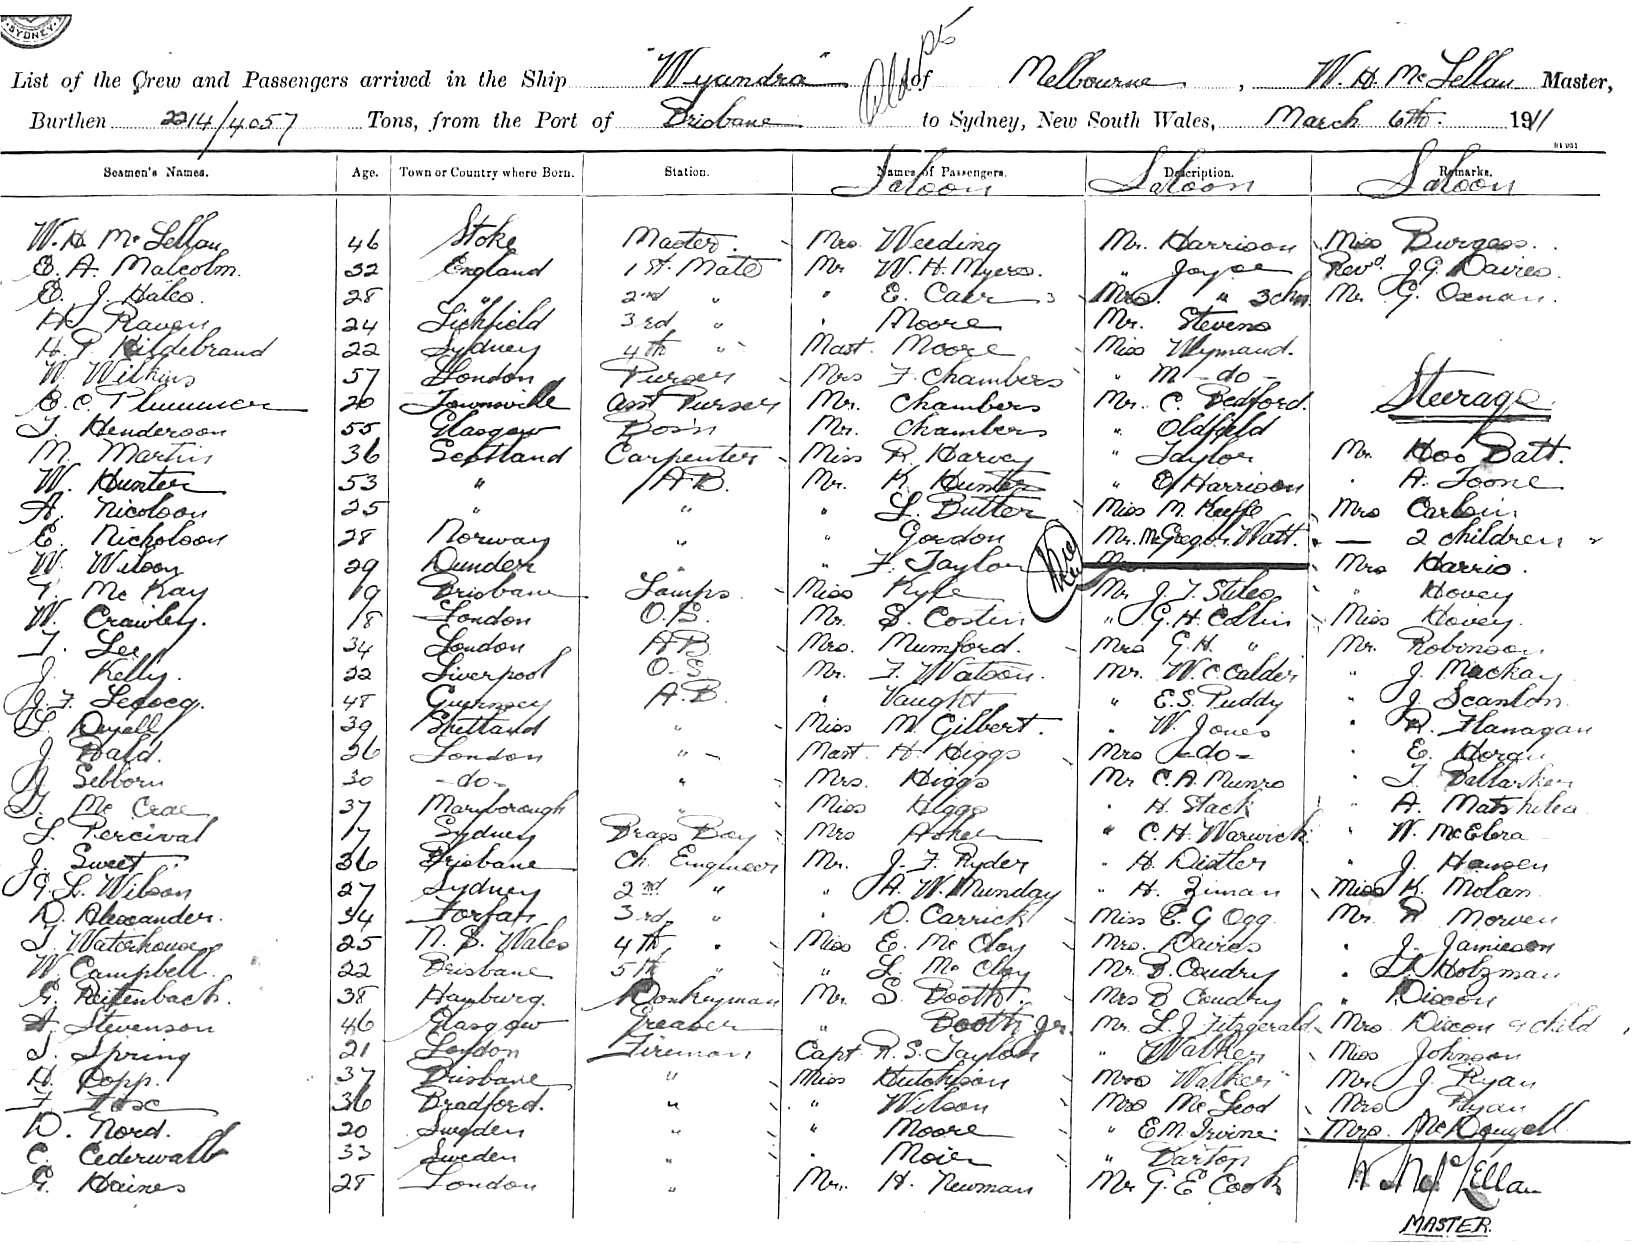 SYDNEY
List of the Crew and Passengers arrived in the Ship "Wyandra" of Melbourne, W. H. McLellan Master,
Burthen 2214/4057 Tons, from the Port of Brisbane to Sydney, New South Wales, March 6th 1911
Seamen's Names. Age. Town or Country where Born. Station. Names of Passengers. Description. Remarks.
Saloon Saloon Saloon
W. H. McLellan 46 Stoke Master Mrs. Weeding Mr. Harrison Miss Burgess.
E. A. Malcolm. 32 England 1st. Mate Mr W. H. Myers. " Joyce Revd. J. G. Davies.
E. J. Hales. 28 " 2nd " " E. Carr Mrs. " 3 chn Mr. G. Oxnan.
H. Raven 24 Lichfield 3rd " " Moore Mr. Stevens
H. P. Hildebrand 22 Sydney 4th " Mast. Moore Miss Wymand.
W. Wilkins 57 London Purser Mrs F. Chambers " M -do- Steerage.
E. C. Plummer 20 Townsville Asst Purser Mr. Chambers Mr. C. Bedford.
T. Henderson 55 Glasgow Bosn Mr. Chambers " Oldfield
M. Martin 36 Scotland Carpenter Miss R. Harvey " Taylor Mr. Hoo Batt.
W. Hunter 53 " A.B. Mr. K. Hunter " O. Harrison " A. Toone
A. Nicolson 25 " " " L. Butter Miss M. Keeffe Mrs
E. Nicholson 28 Norway " " Gordon Mr. McGregor Watt. — 2 children
W. Wilson 29 Dundee " " F. Taylor Mrs Harris.
T. McKay 19 Brisbane Lamps. Miss Kyle Mr J. T. Stiles " Hovey
W. Crawley. 18 London O.S. Mr. S. Costin " G. H. Collin Miss Hovey.
T. Lee 34 London A.B. Mrs. Mumford. Mrs G. H. " Mr. Robinson
J. Kelly. 22 Liverpool O.S. Mr. F. Watson. Mr. W. C. Calder " J. Mackay
J. F. Lecocq. 48 Guernsey A.B. " Vaught " E. S. Puddy " J. Scanlon.
L. 39 Shetland " Miss M. Gilbert. " W. Jones " R. Flanagan
J. Bald. 26 London " Mast H. Higgs Mrs -do- " E. Horan
A. Sebborn 30 -do- " Mrs. Higgs Mr C. A. Munro " T.
T. McCrae 37 Maryborough " Miss Higgs " H. Stack " A.
L. Percival 17 Sydney Brass Boy Mrs Asher " C. H. Warwick " W.
J. Sweet. 36 Brisbane Ch. Engineer Mr. J. F. Ryder " H. Distler " J. Hansen
G. L. Wilson 27 Sydney 2nd " " A. W. Munday " H. Ziman Miss K. Molan.
D. Alexander. 34 Forfar 3rd " " D. Carrick Miss E. G. Ogg. Mr. R Morven
T. Waterhouse 25 N. S. Wales 4th " Miss E. McCloy Mrs. Davies " J. Jamieson
W. Campbell. 22 Brisbane 5th " " L. McCloy Mr. B. Coudry " Holzman
G. Reifenbach. 38 Hamburg. Donkeyman Mr. S. Booth. Mrs B Coudry " Dixon
A. Stevenson 46 Glasgow Greaser " Booth Jr. Mr. L. J. Fitzgerald Mrs. Dixon & child
T. Spring 21 London Fireman Capt R. S. Taylor " Walker Miss Johnson
H. Copp. 37 Brisbane " Miss Hutchison Mrs Walker Mr J. Ryan
F. Fox 36 Bradford. " " Wilson Mrs McLeod Mrs Ryan
D. Nord. 20 Sweden " " Moore " E. M. Irvine Mrs. McDougall
C. Cederwall 33 Sweden " " Moier " Barton
G. Haines 28 London " Mr. H. Newman Mr G. E. Cook W. McLellan
MASTER.